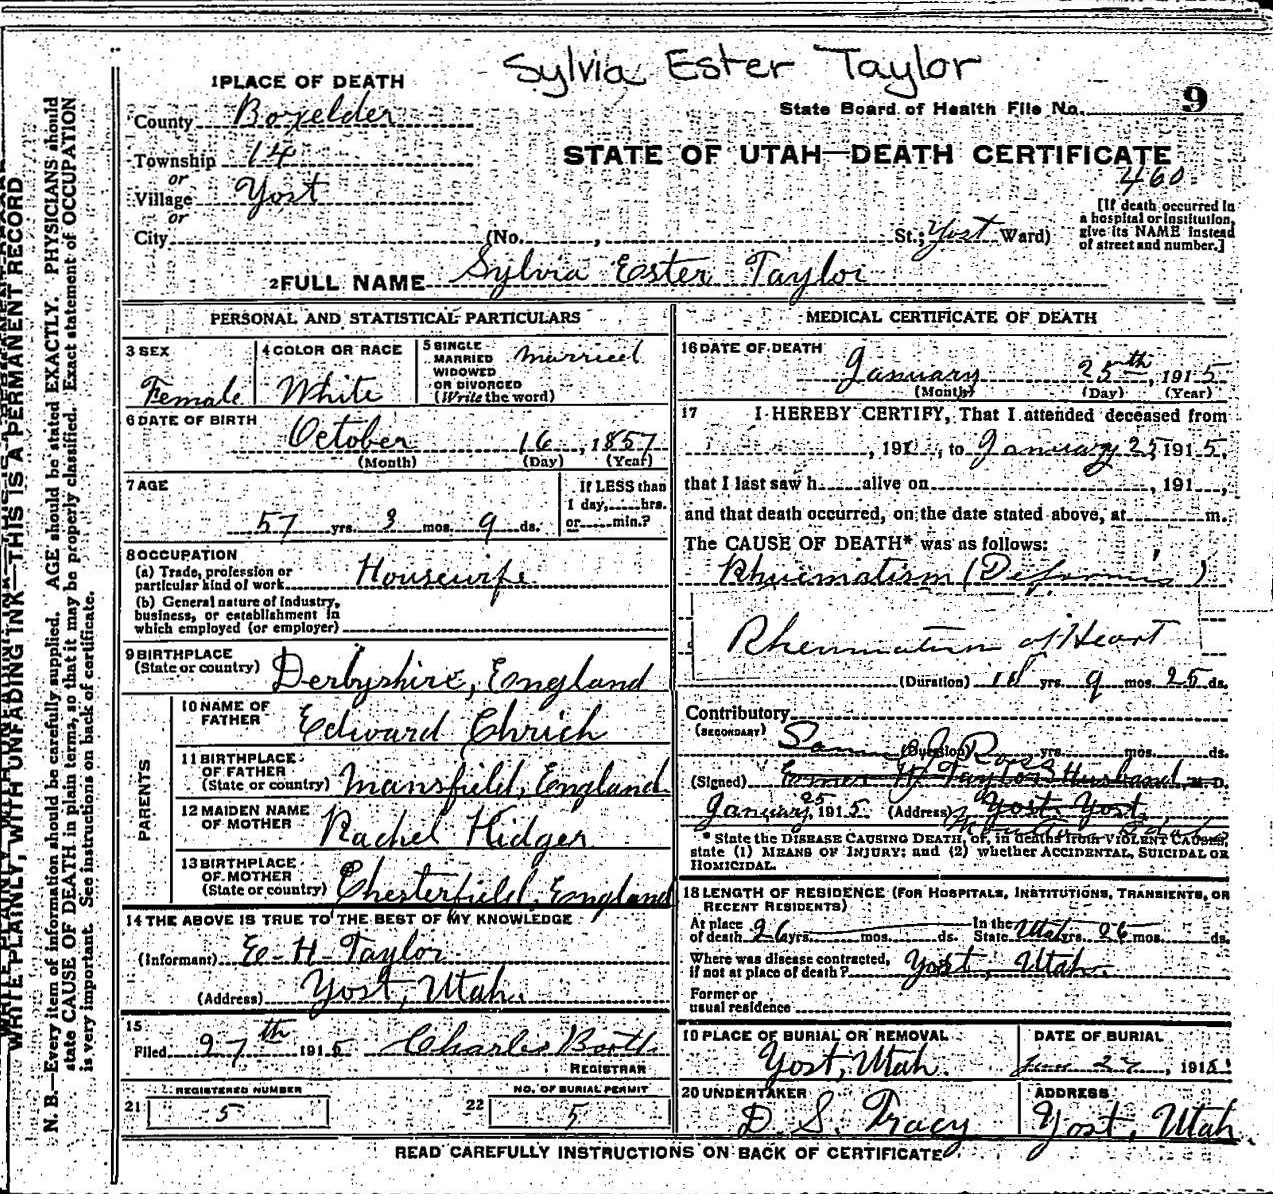 Sylvia Ester Taylor
1 PLACE OF DEATH
State Board of Health File No. 9
County Boxelder
STATE OF UTAH—DEATH CERTIFICATE
460
Township 14
or
Village Yost
or
City (No. , St.; Yost Ward)
[If death occurred in
a hospital or institution,
give its NAME instead
of street and number.]
2 FULL NAME Sylvia Ester Taylor
PERSONAL AND STATISTICAL PARTICULARS
3 SEX
Female
4 COLOR OR RACE
White
5 SINGLE
MARRIED
WIDOWED
OR DIVORCED
(Write the word)
married
6 DATE OF BIRTH
October 16, 1857
(Month) (Day) (Year)
7 AGE
57 yrs. 3 mos. 9 ds.
If LESS than
1 day, hrs.
or min.?
8 OCCUPATION
(a) Trade, profession or
particular kind of work Housewife
(b) General nature of industry,
business, or establishment in
which employed (or employer)
9 BIRTHPLACE
(State or country) Derbyshire, England
PARENTS
10 NAME OF
FATHER Edward Chrich
11 BIRTHPLACE
OF FATHER
(State or country) Mansfield, England
12 MAIDEN NAME
OF MOTHER Rachel Hidger
13 BIRTHPLACE
OF MOTHER
(State or country) Chesterfield, England
14 THE ABOVE IS TRUE TO THE BEST OF MY KNOWLEDGE
(Informant) E H Taylor
(Address) Yost, Utah.
15
Filed 27th 1915 Charles Booth
REGISTRAR
REGISTERED NUMBER
21 5
NO. OF BURIAL PERMIT
22 5
MEDICAL CERTIFICATE OF DEATH
16 DATE OF DEATH
January 25th, 1915
(Month) (Day) (Year)
17 I HEREBY CERTIFY, That I attended deceased from
, 191 , to January 25, 1915,
that I last saw h alive on , 191 ,
and that death occurred, on the date stated above, at m.
The CAUSE OF DEATH* was as follows:
Rheumatism
Rheumatism of Heart
(Duration) yrs. 9 mos. 25 ds.
Contributory
(SECONDARY)
(Duration) yrs. mos. ds.
(Signed) Taylor Husband, M. D.
January 25, 1915 (Address) Yost Yost
* State the DISEASE CAUSING DEATH, or, in deaths from VIOLENT CAUSES,
state (1) MEANS OF INJURY; and (2) whether ACCIDENTAL, SUICIDAL OR
HOMICIDAL.
18 LENGTH OF RESIDENCE (FOR HOSPITALS, INSTITUTIONS, TRANSIENTS, OR
RECENT RESIDENTS)
At place
of death 26 yrs. mos. ds. In the
State Utah yrs. 26 mos. ds.
Where was disease contracted,
if not at place of death? Yost, Utah.
Former or
usual residence
19 PLACE OF BURIAL OR REMOVAL
Yost, Utah.
DATE OF BURIAL
Jan 27, 1915
20 UNDERTAKER
D. S. Tracy
ADDRESS
Yost, Utah.
READ CAREFULLY INSTRUCTIONS ON BACK OF CERTIFICATE
WRITE PLAINLY, WITH UNFADING INK—THIS IS A PERMANENT RECORD
N. B.—Every item of information should be carefully supplied. AGE should be stated EXACTLY. PHYSICIANS should
state CAUSE OF DEATH in plain terms, so that it may be properly classified. Exact statement of OCCUPATION
is very important. See instructions on back of certificate.